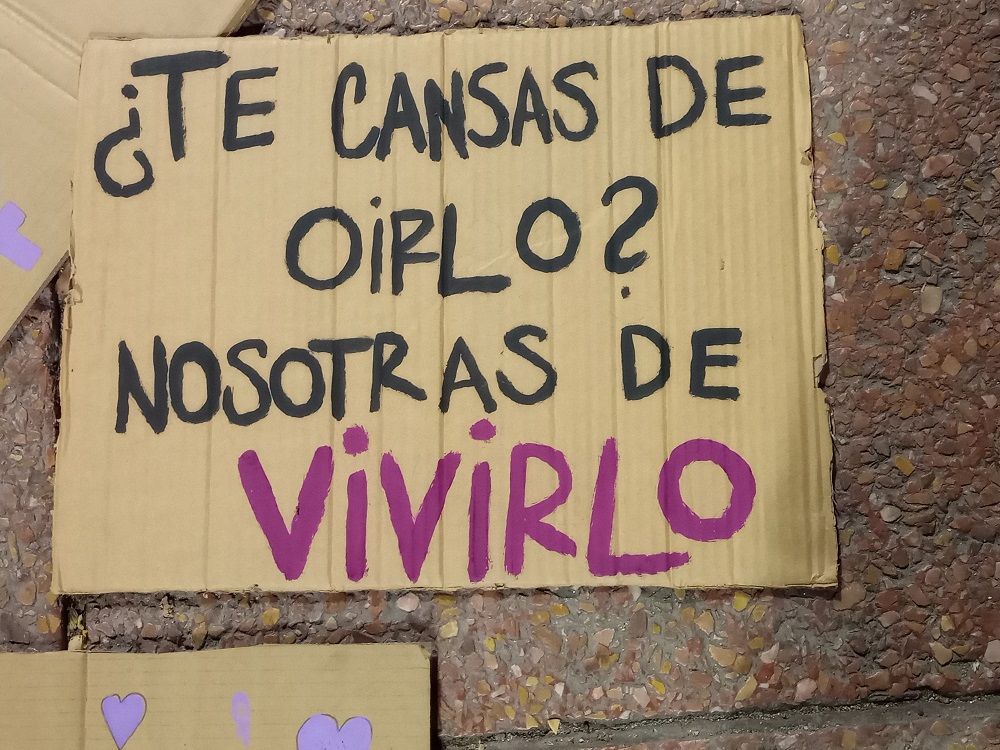 ¿TE CANSAS DE
OiRLO?
NOSOTRAS DE
ViViRLO